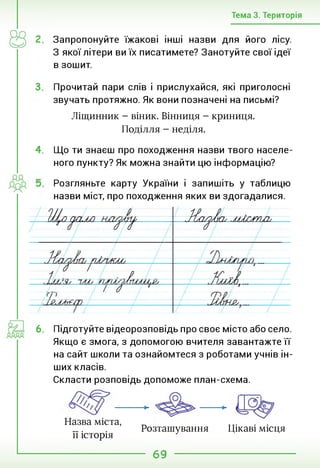 Тема 3. Територія
2. Запропонуйте їжакові інші назви для його лісу.
З якої літери ви їх писатимете? Занотуйте свої ідеї
в зошит.
3. Прочитай пари слів і прислухайся, які приголосні
звучать протяжно. Як вони позначені на письмі?
Ліщинник – віник. Вінниця – криниця.
Поділля – неділя.
4. Що ти знаєш про походження назви твого населе-
ного пункту? Як можна знайти цю інформацію?
5. Розгляньте карту України і запишіть у таблицю
назви міст, про походження яких ви здогадалися.
Що дало назву Назва міста
Назва річки Дніпро, ...
Ім'я чи прізвище Київ, ...
Рельєф Рівне, ...
6. Підготуйте відеорозповідь про своє місто або село.
Якщо є змога, з допомогою вчителя завантажте її
на сайт школи та ознайомтеся з роботами учнів ін-
ших класів.
Скласти розповідь допоможе план-схема.
Назва міста, її історія
Розташування
Цікаві місця
69